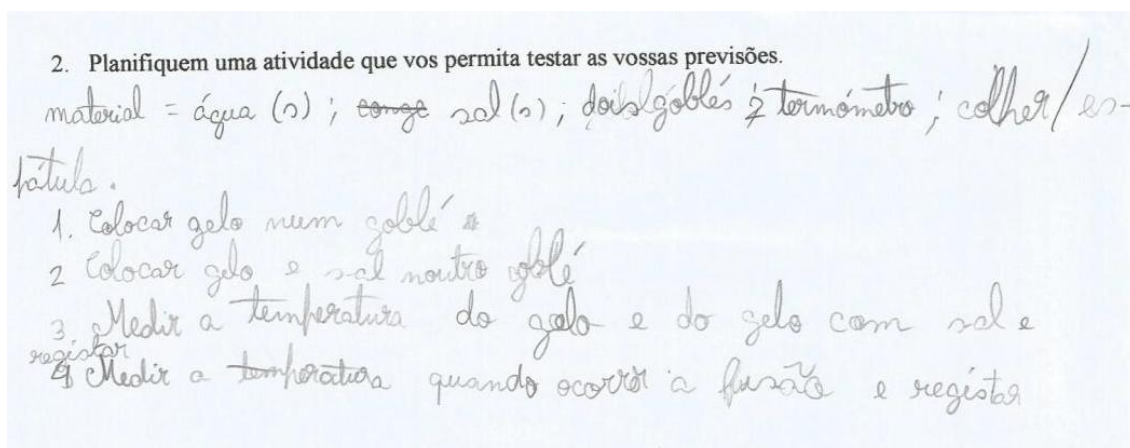 2. Planifiquem uma atividade que vos permita testar as vossas previsões.
material = água (s) ; conge sal (s) ; dois goblés ; 2 termómetro ; colher / es-
pátula.
1. Colocar gelo num goblé
2 Colocar gelo e sal noutro goblé
3. Medir a temperatura do gelo e do gelo com sal e
registar
4 Medir a temperatura quando ocorrer a fusão e registar